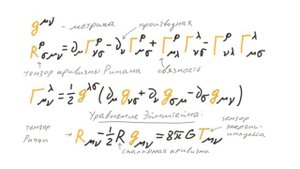 g^{μν} - метрика производная
R^ρ_{σμν} = ∂_μ Γ^ρ_{νσ} - ∂_ν Γ^ρ_{μσ} + Γ^ρ_{μλ} Γ^λ_{νσ} - Γ^ρ_{νλ} Γ^λ_{μσ}
тензор кривизны Римана связность
Γ^λ_{μν} = 1/2 g^{λσ} (∂_μ g_{νσ} + ∂_ν g_{σμ} - ∂_σ g_{μν})
Уравнение Эйнштейна
тензор Риччи R_{μν} - 1/2 R g_{μν} = 8πG T_{μν} тензор энергии-импульса
скалярная кривизна